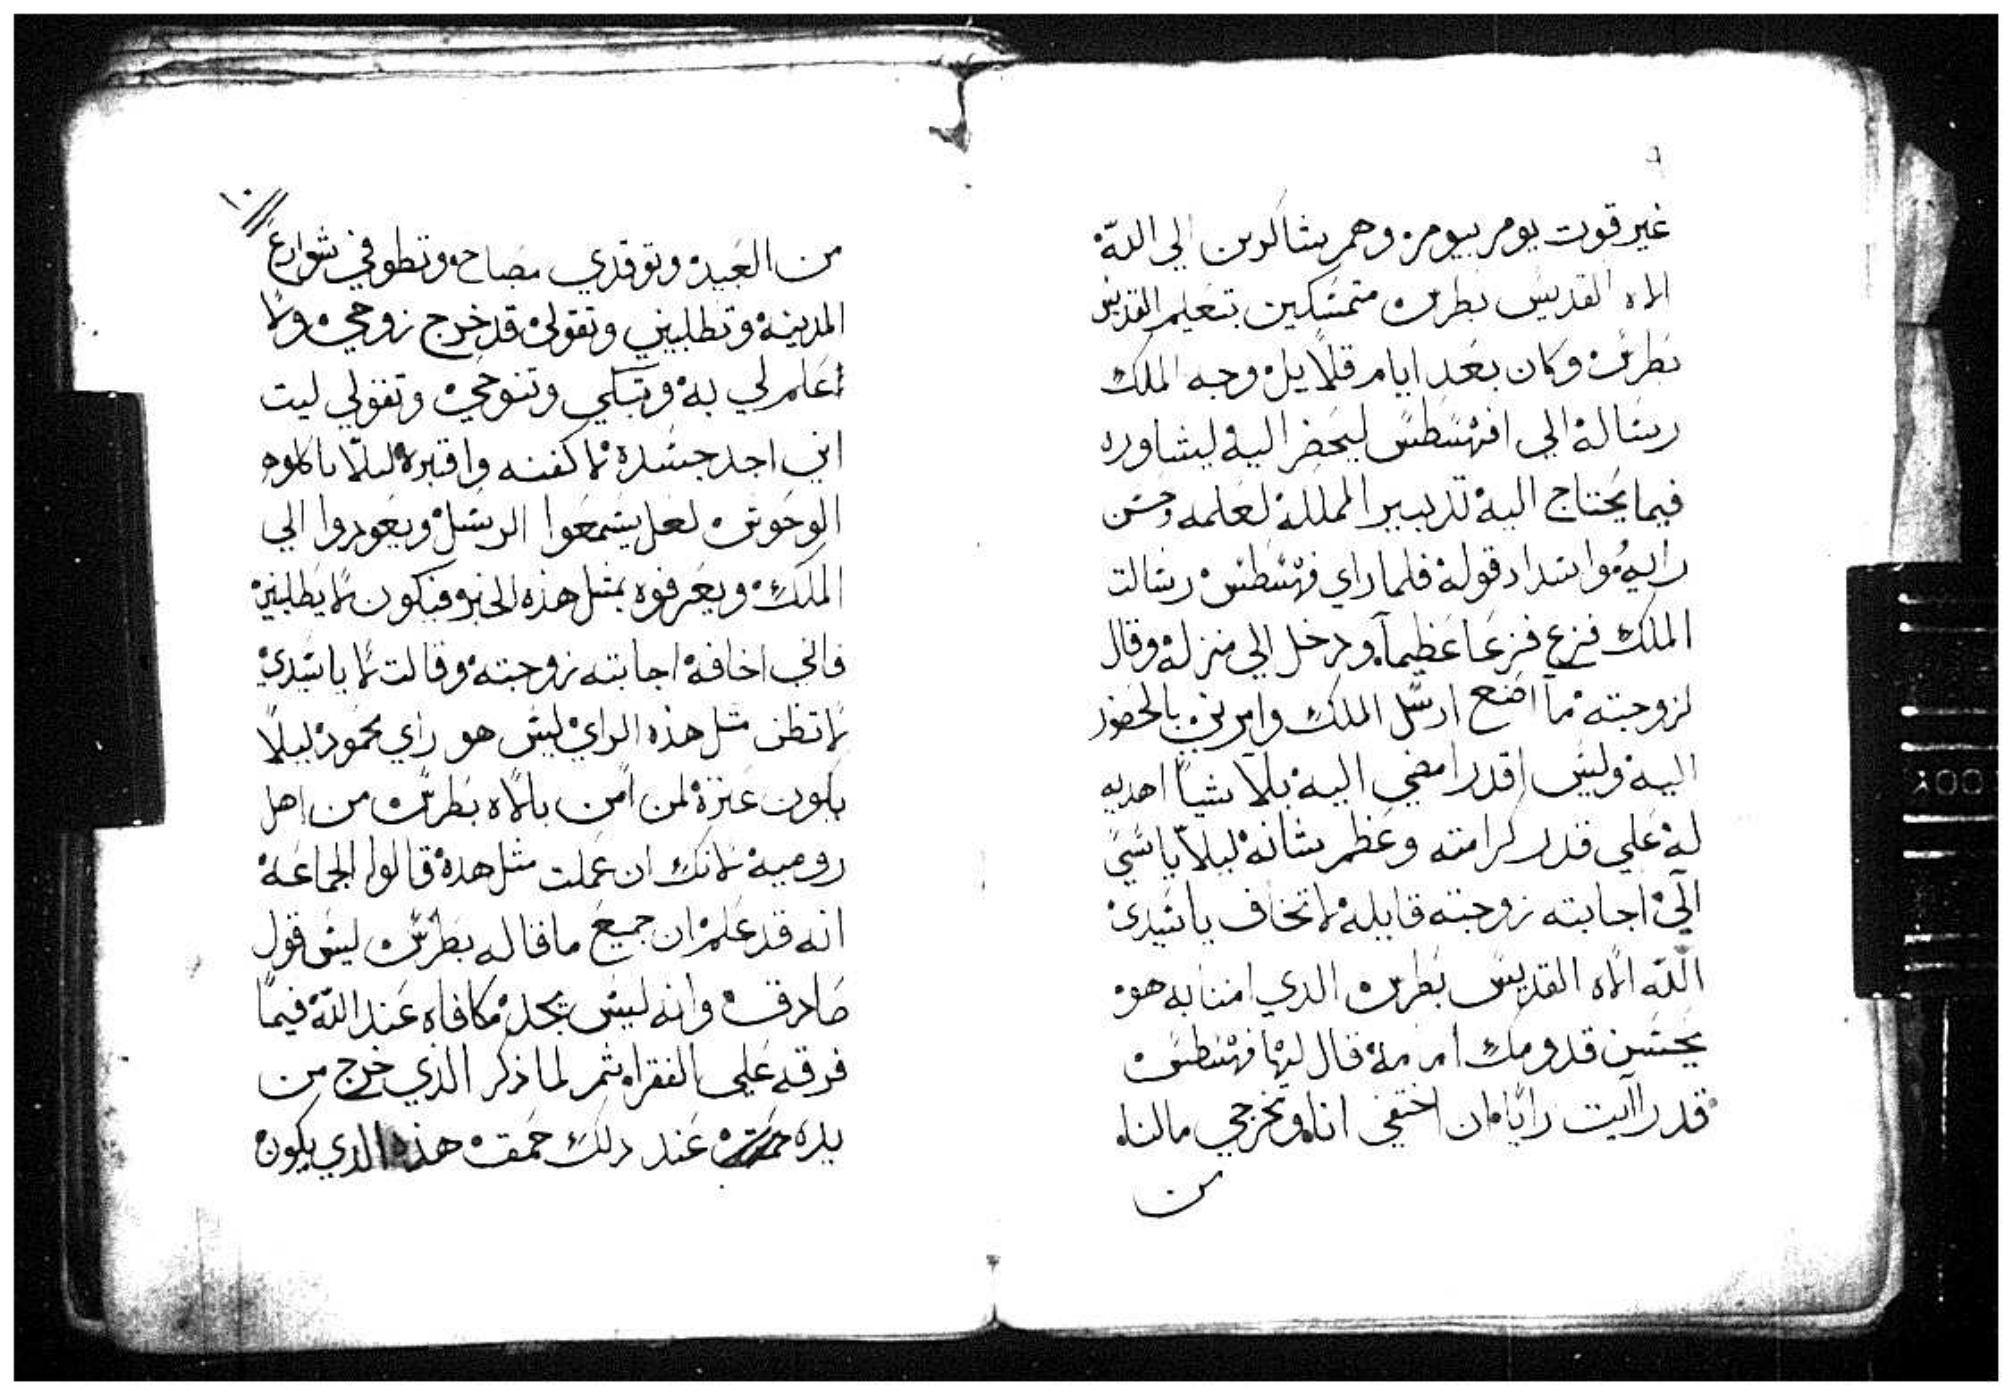 ٩
غير قوت يوم بيوم وهم يشاكرين الي اللّه
الاه القديس بطرس متمسكين بتعليم القديس
بطرس وكان بعد ايام قلايل وجه الملك
رسالة الي افهسطس ليحضر اليه ليشاوره
فيما يحتاج اليه تدبير المملكة لعلمه وحسن
رايه واسداد قوله فلما راي فهسطس رسالت
الملك فزع فزعا عظيماً ودخل الي منزله وقال
لزوجته ما اصنع ارسل الملك وامرني بالحضور
اليه وليس اقدر امضي اليه بلا شياً اهديه
له علي قدر كرامته وعظم شانه ليلا ياسي
اليّ اجابته زوجته قايله لا تخاف ياسيدي
اللّه الاه القديس بطرس الدي امنا به هو
يحسن قدومك امامه قال لها فهسطس
قد راايت راياً ان اختفي انا وتخرجي مالنا
من
١٠
من العبيد وتوقدي مصباح وتطوفي شوارع
المدينة وتطلبيني وتقولي قد خرج زوجي ولا
اعلم لي به وتبكي وتنوحي وتقولي ليت
اني اجد جسده لاكفنه واقبره ليلا ياكلوه
الوحوش لعل يسمعوا الرسل ويعودوا الي
الملك ويعرفوه بمثل هذه الخبر فيكون لا يطلبني
فاني اخافه اجابته زوجته وقالت لا ياسيدي
لا تظن مثل هذه الراي ليس هو راي محمود ليلا
يكون عثرة لمن امن بالاه بطرس من اهل
رومية لانك ان عملت مثل هده قالوا الجماعة
انه قد علم ان جميع ما قاله بطرس ليس قول
صادق وانه ليس يجد مكافاه عند اللّه فيما
فرقه علي الفقراء ثم لما ذكر الذي خرج من
يده عند دلك حمق هذه الدي يكون